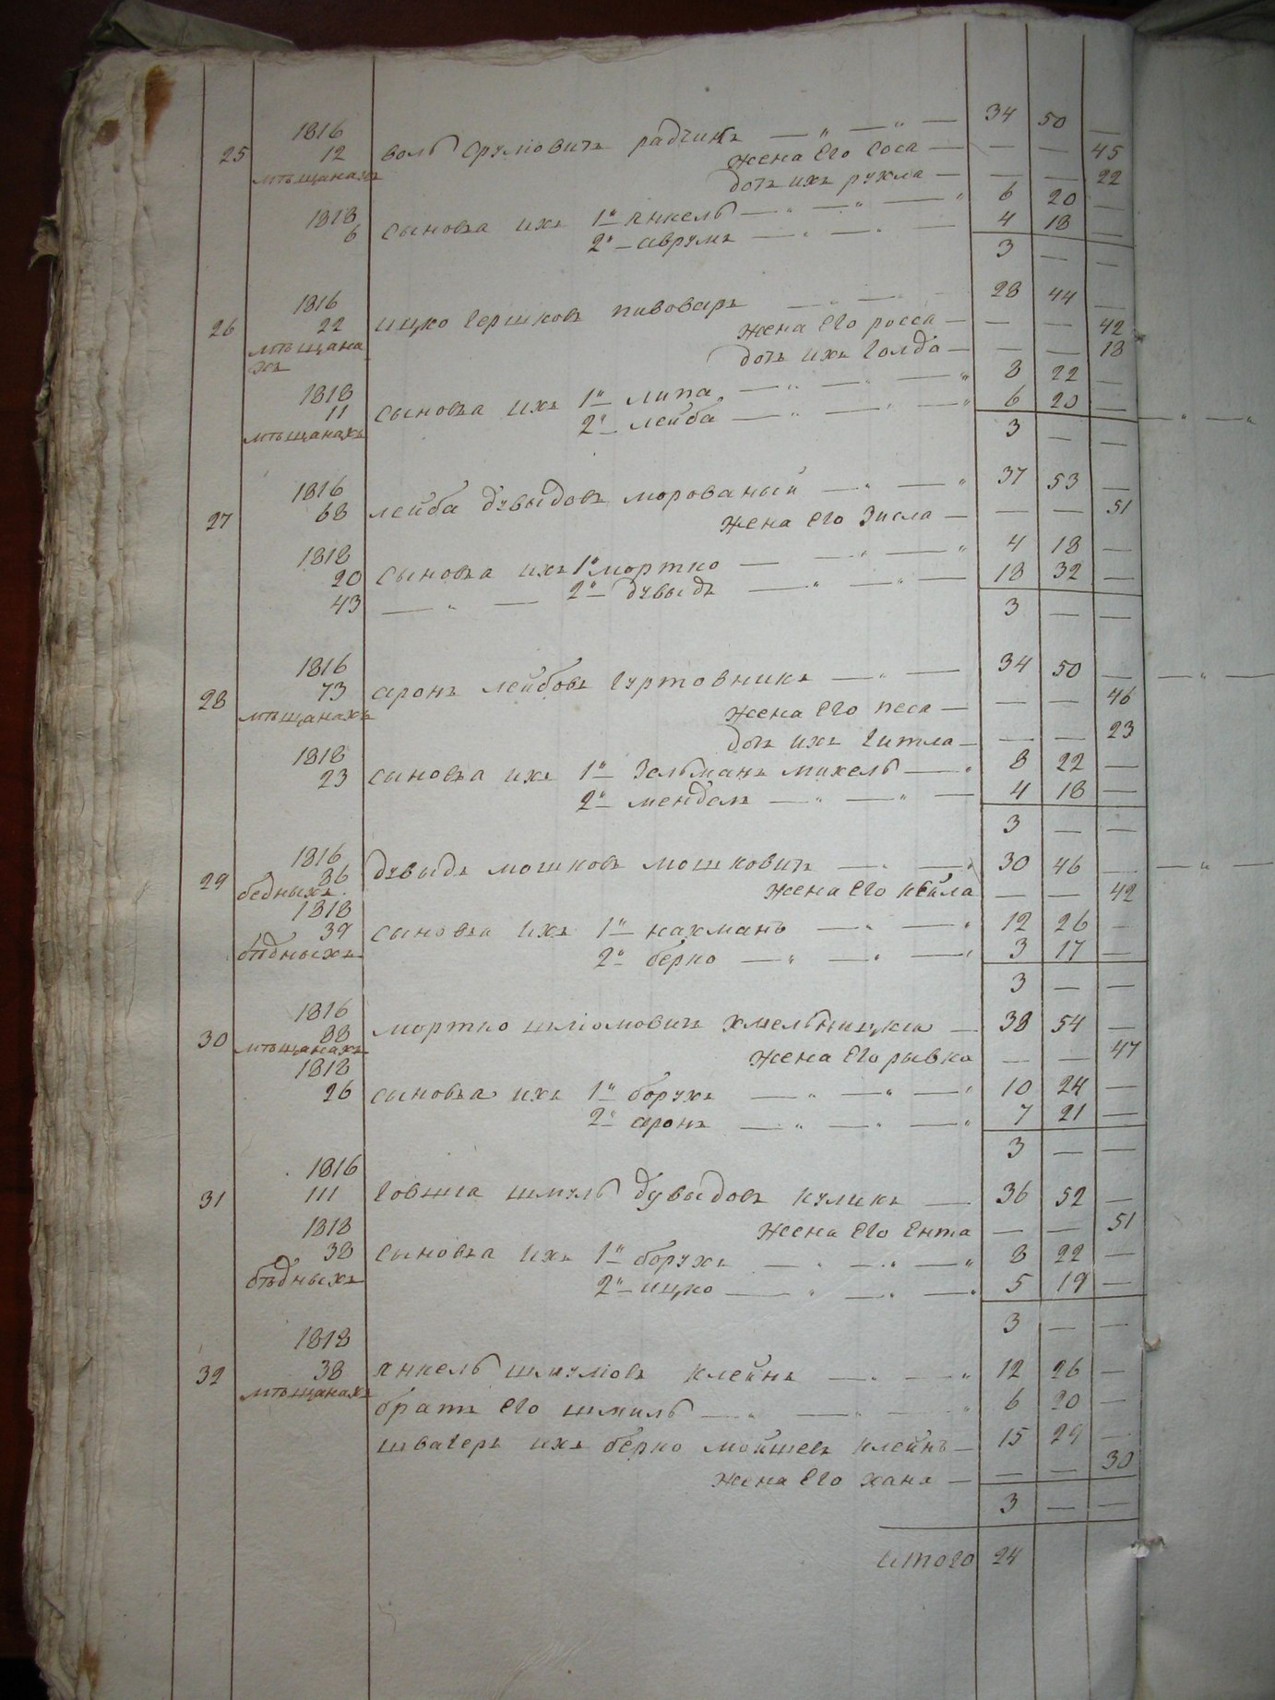 1816 34 50 —
25 12 волѣ Срулiовичъ радчикъ — " — " —
мѣщанахъ жена Его Соса — — — 45
дочь ихъ рухла — — — 22
1818 6 20 —
6 сыновья ихъ 1й янкель — " — " — "
2й аврумъ — " — " — 4 18 —
3 — —
1816 28 44 —
26 22 ицко Гершковъ пивоваръ — " —
мѣщана жена Его росса — — — 42
хъ дочь ихъ Голда — — — 18
1818 8 22 —
11 сыновья ихъ 1й липа — " — " — "
мѣщанахъ 2й лейба — " — " — " 6 20 —
3 — —
1816 37 53 —
27 68 лейба дувыдовъ морованый — " — "
жена Его Зисла — — — 51
1818 4 18 —
20 сыновья ихъ 1й мортко — — " — "
43 — " — 2й дувыдъ — " — " — 18 32 —
3 — —
1816 34 50 —
28 73 аронъ лейбовъ Гуртовникъ — " —
мѣщанахъ жена Его песя — — — 46
дочь ихъ Гитла — — — 23
1818
23 сыновья ихъ 1й Зельманъ михель — " 8 22 —
2й мендель — " — " — 4 18 —
3 — —
1816
29 36 дувыдъ мошковъ мошковичъ — " — " 30 46 —
бедныхъ жена Его кейла — — 42
1818
39 сыновья ихъ 1й нахманъ — " — " 12 26 —
бѣдныхъ 2й берко — " — " — " 3 17 —
3 — —
1816
30 88 мортко шлiомовичъ хмельницки — 38 54 —
мѣщанахъ жена Его рывка — — 47
1818
26 сыновья ихъ 1й борухъ — " — " — " 10 24 —
2й аронъ — " — " — " 7 21 —
3 — —
1816
31 111 Говшiа шмуль дувыдовъ куликъ — 36 52 —
1818 жена Его Ента — — 51
38 сыновья ихъ 1й борухъ — " — " — " 8 22 —
бѣдныхъ 2й ицко — " — " — " 5 19 —
3 — —
1818
32 38 янкель шмулiовъ клейнъ — " — " 12 26 —
мѣщанахъ
братъ Его шмиль — " — — " 6 20 —
шваГеръ ихъ берко мойшевъ клейнъ — 15 29 —
жена Его хана — — — 30
3 — —
итого 24